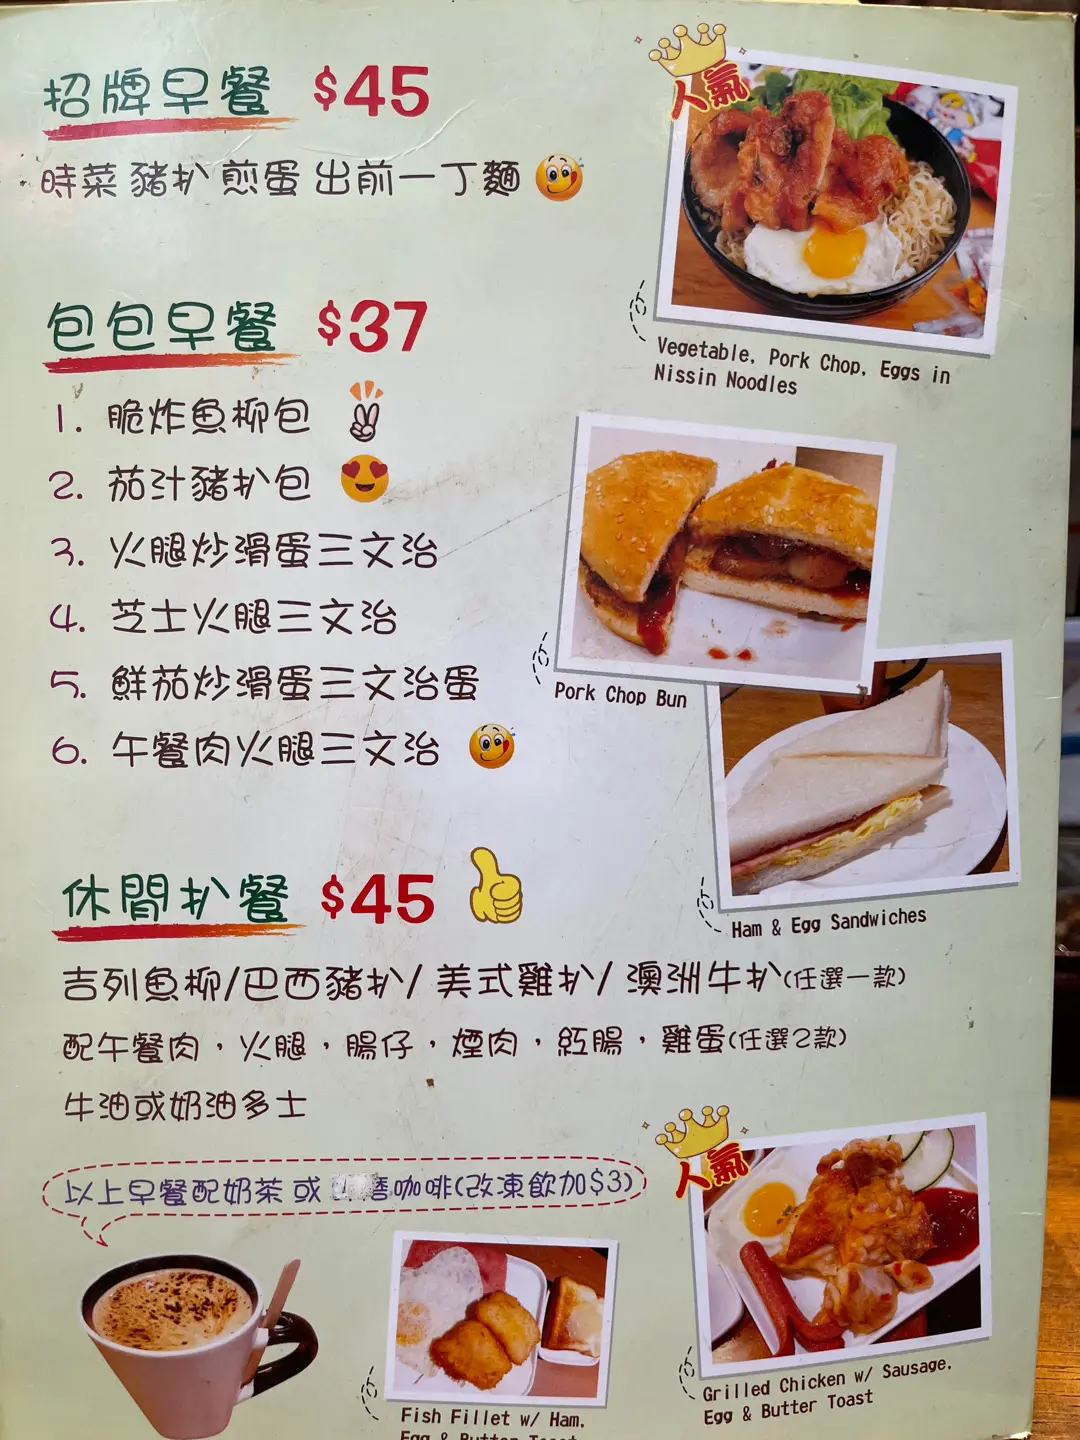 招牌早餐 $45
時菜 豬扒 煎蛋 出前一丁麵
人氣
Vegetable, Pork Chop, Eggs in
Nissin Noodles
包包早餐 $37
1. 脆炸魚柳包
2. 茄汁豬扒包
3. 火腿炒滑蛋三文治
4. 芝士火腿三文治
5. 鮮茄炒滑蛋三文治蛋
6. 午餐肉火腿三文治
Pork Chop Bun
Ham & Egg Sandwiches
休閒扒餐 $45
吉列魚柳/巴西豬扒/美式雞扒/澳洲牛扒(任選一款)
配午餐肉,火腿,腸仔,煙肉,紅腸,雞蛋(任選2款)
牛油或奶油多士
以上早餐配奶茶 或 咖啡(改凍飲加$3)
人氣
Grilled Chicken w/ Sausage,
Egg & Butter Toast
Fish Fillet w/ Ham,
Egg & Butter Toast